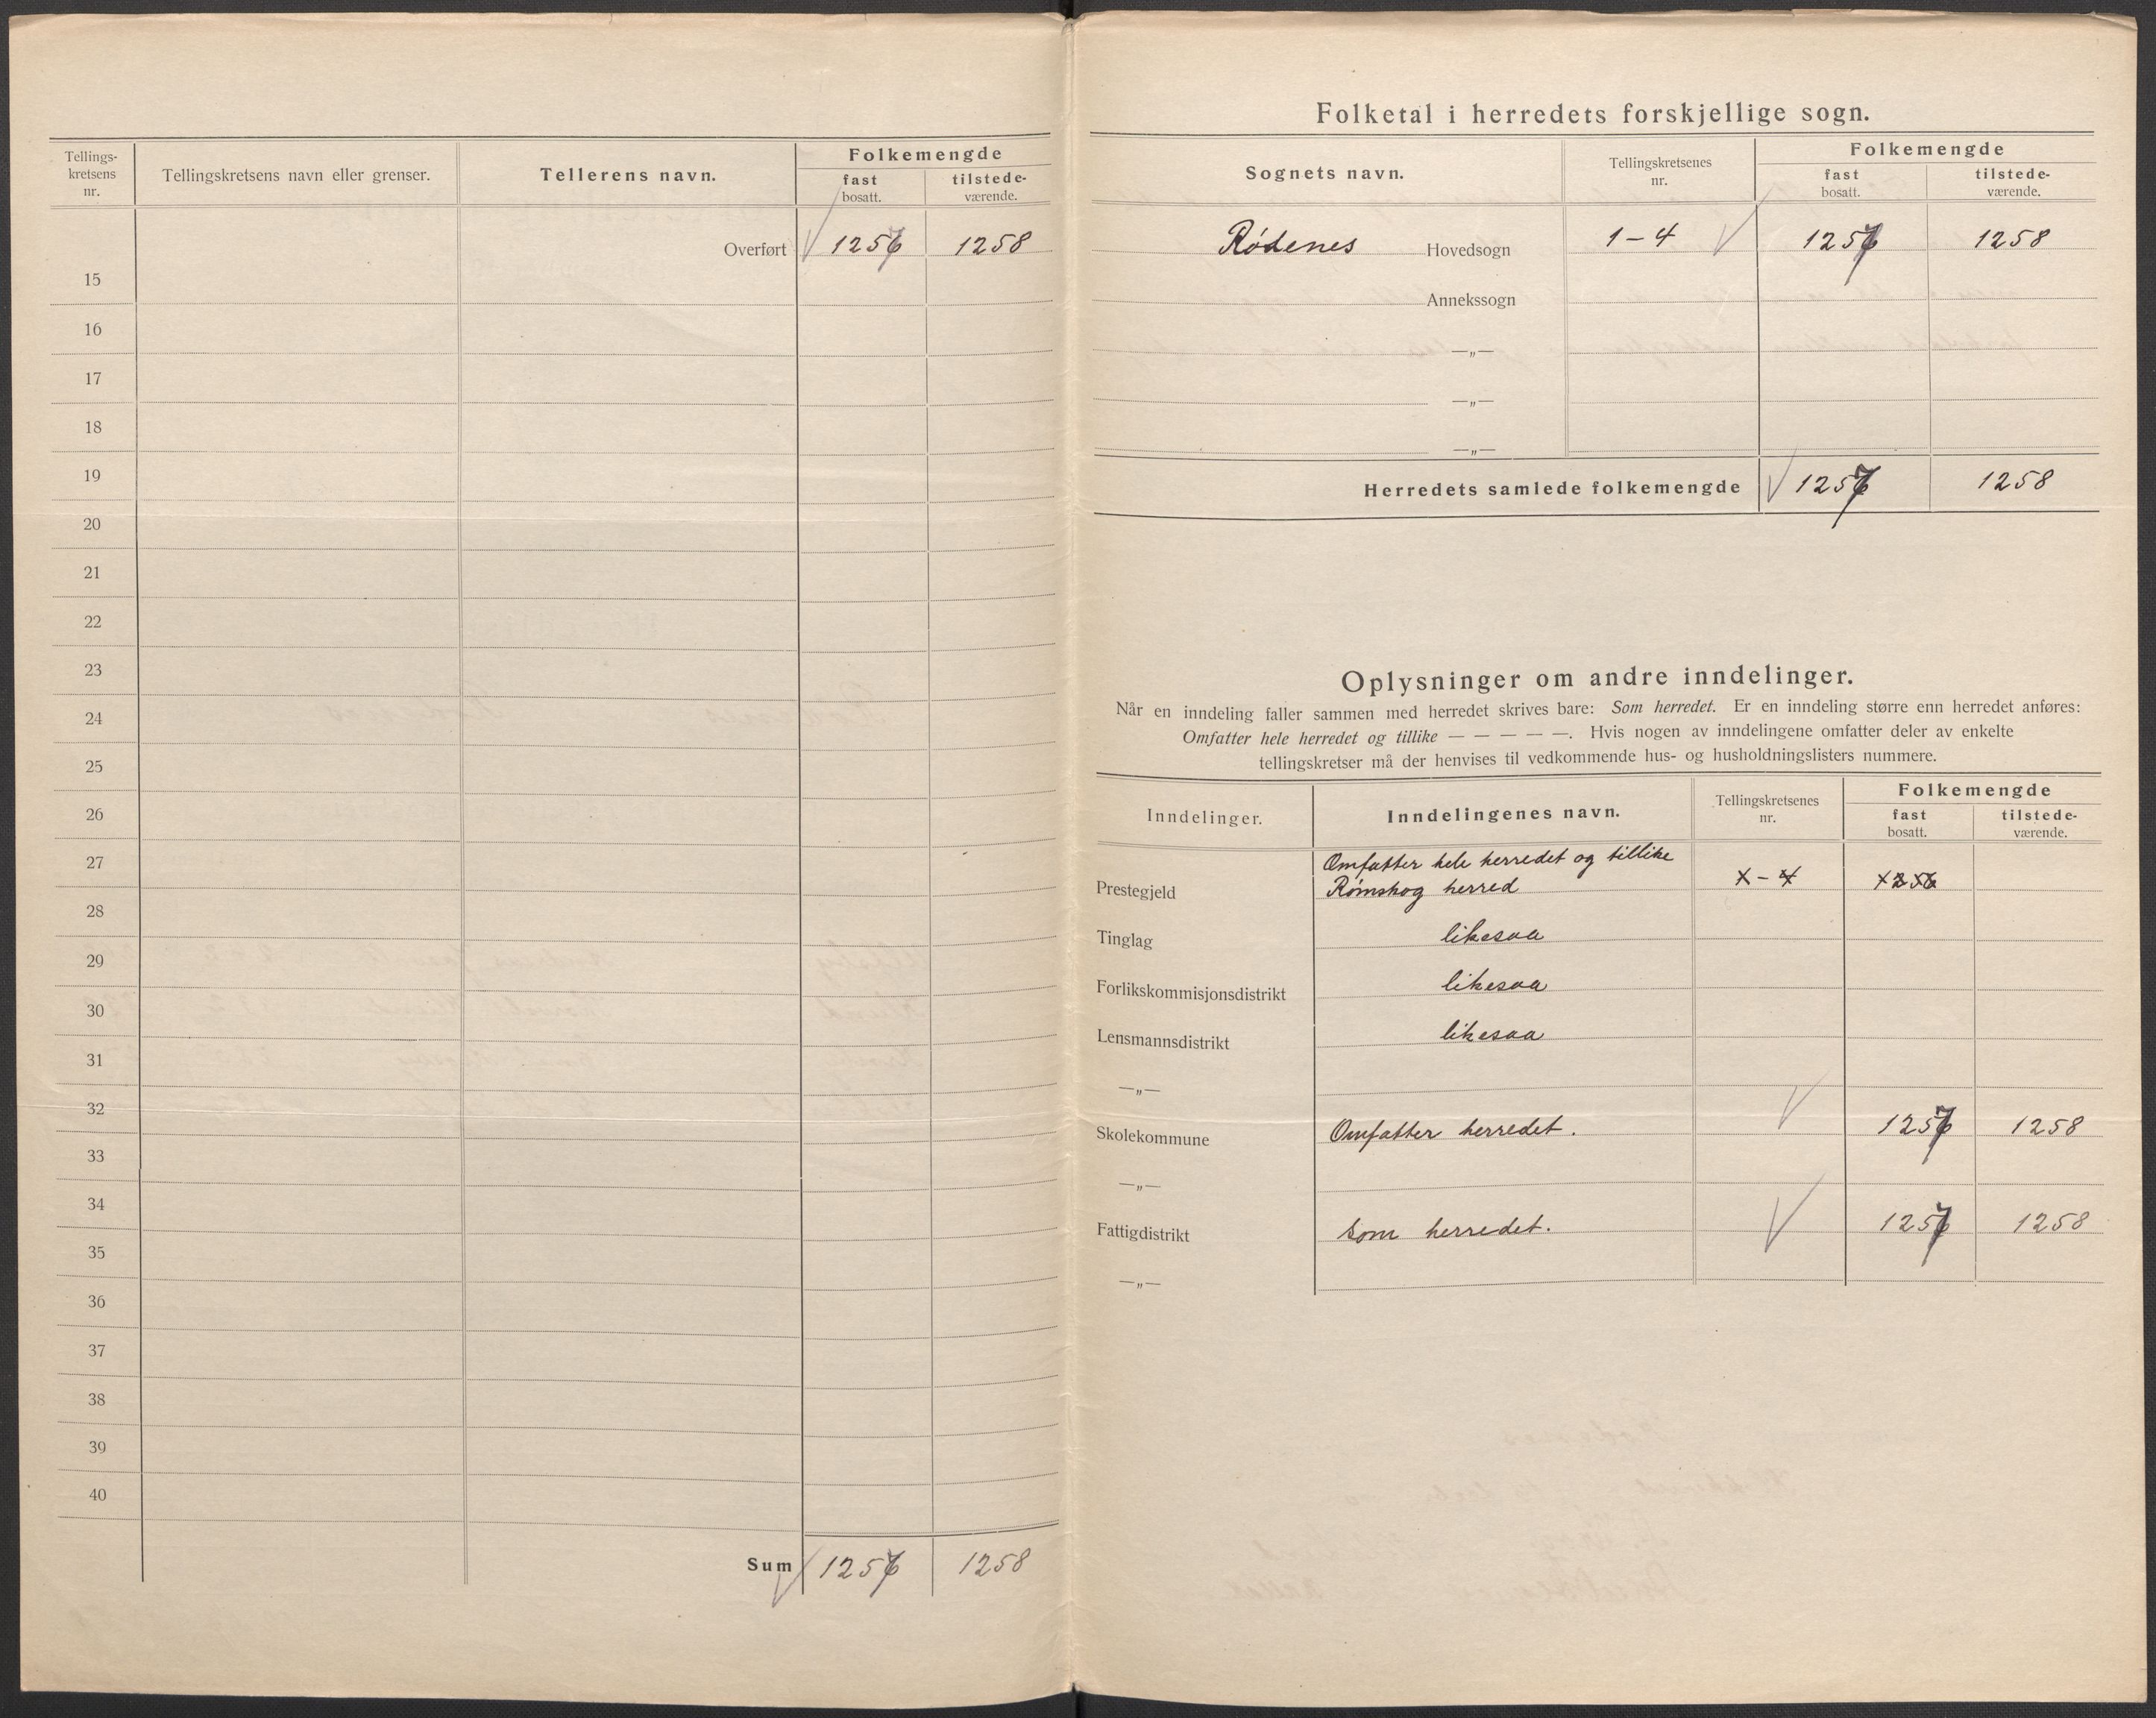 Tellings-
kretsens
nr.
Tellingskretsens navn eller grenser.
Tellerens navn.
Folkemengde
fast
bosatt.
tilstede-
værende.
Overført 1257 1258
15
16
17
18
19
20
21
22
23
24
25
26
27
28
29
30
31
32
33
34
35
36
37
38
39
40
Sum 1257 1258
Folketal i herredets forskjellige sogn.
Sognets navn.
Tellingskretsenes
nr.
Folkemengde
fast
bosatt.
tilstede-
værende.
Rødenes Hovedsogn 1-4 1257 1258
Annekssogn
—„—
—„—
—„—
Herredets samlede folkemengde 1257 1258
Oplysninger om andre inndelinger.
Når en inndeling faller sammen med herredet skrives bare: Som herredet. Er en inndeling større enn herredet anføres:
Omfatter hele herredet og tillike — — — — —. Hvis nogen av inndelingene omfatter deler av enkelte
tellingskretser må der henvises til vedkommende hus- og husholdningslisters nummere.
Inndelinger.
Inndelingenes navn.
Tellingskretsenes
nr.
Folkemengde
fast
bosatt.
tilstede-
værende.
Omfatter hele herredet og tillike
Prestegjeld Rømskog herred 1-4 1256
Tinglag likesaa
Forlikskommisjonsdistrikt likesaa
Lensmannsdistrikt likesaa
—„—
Skolekommune Omfatter herredet. 1257 1258
—„—
Fattigdistrikt Som herredet. 1257 1258
—„—